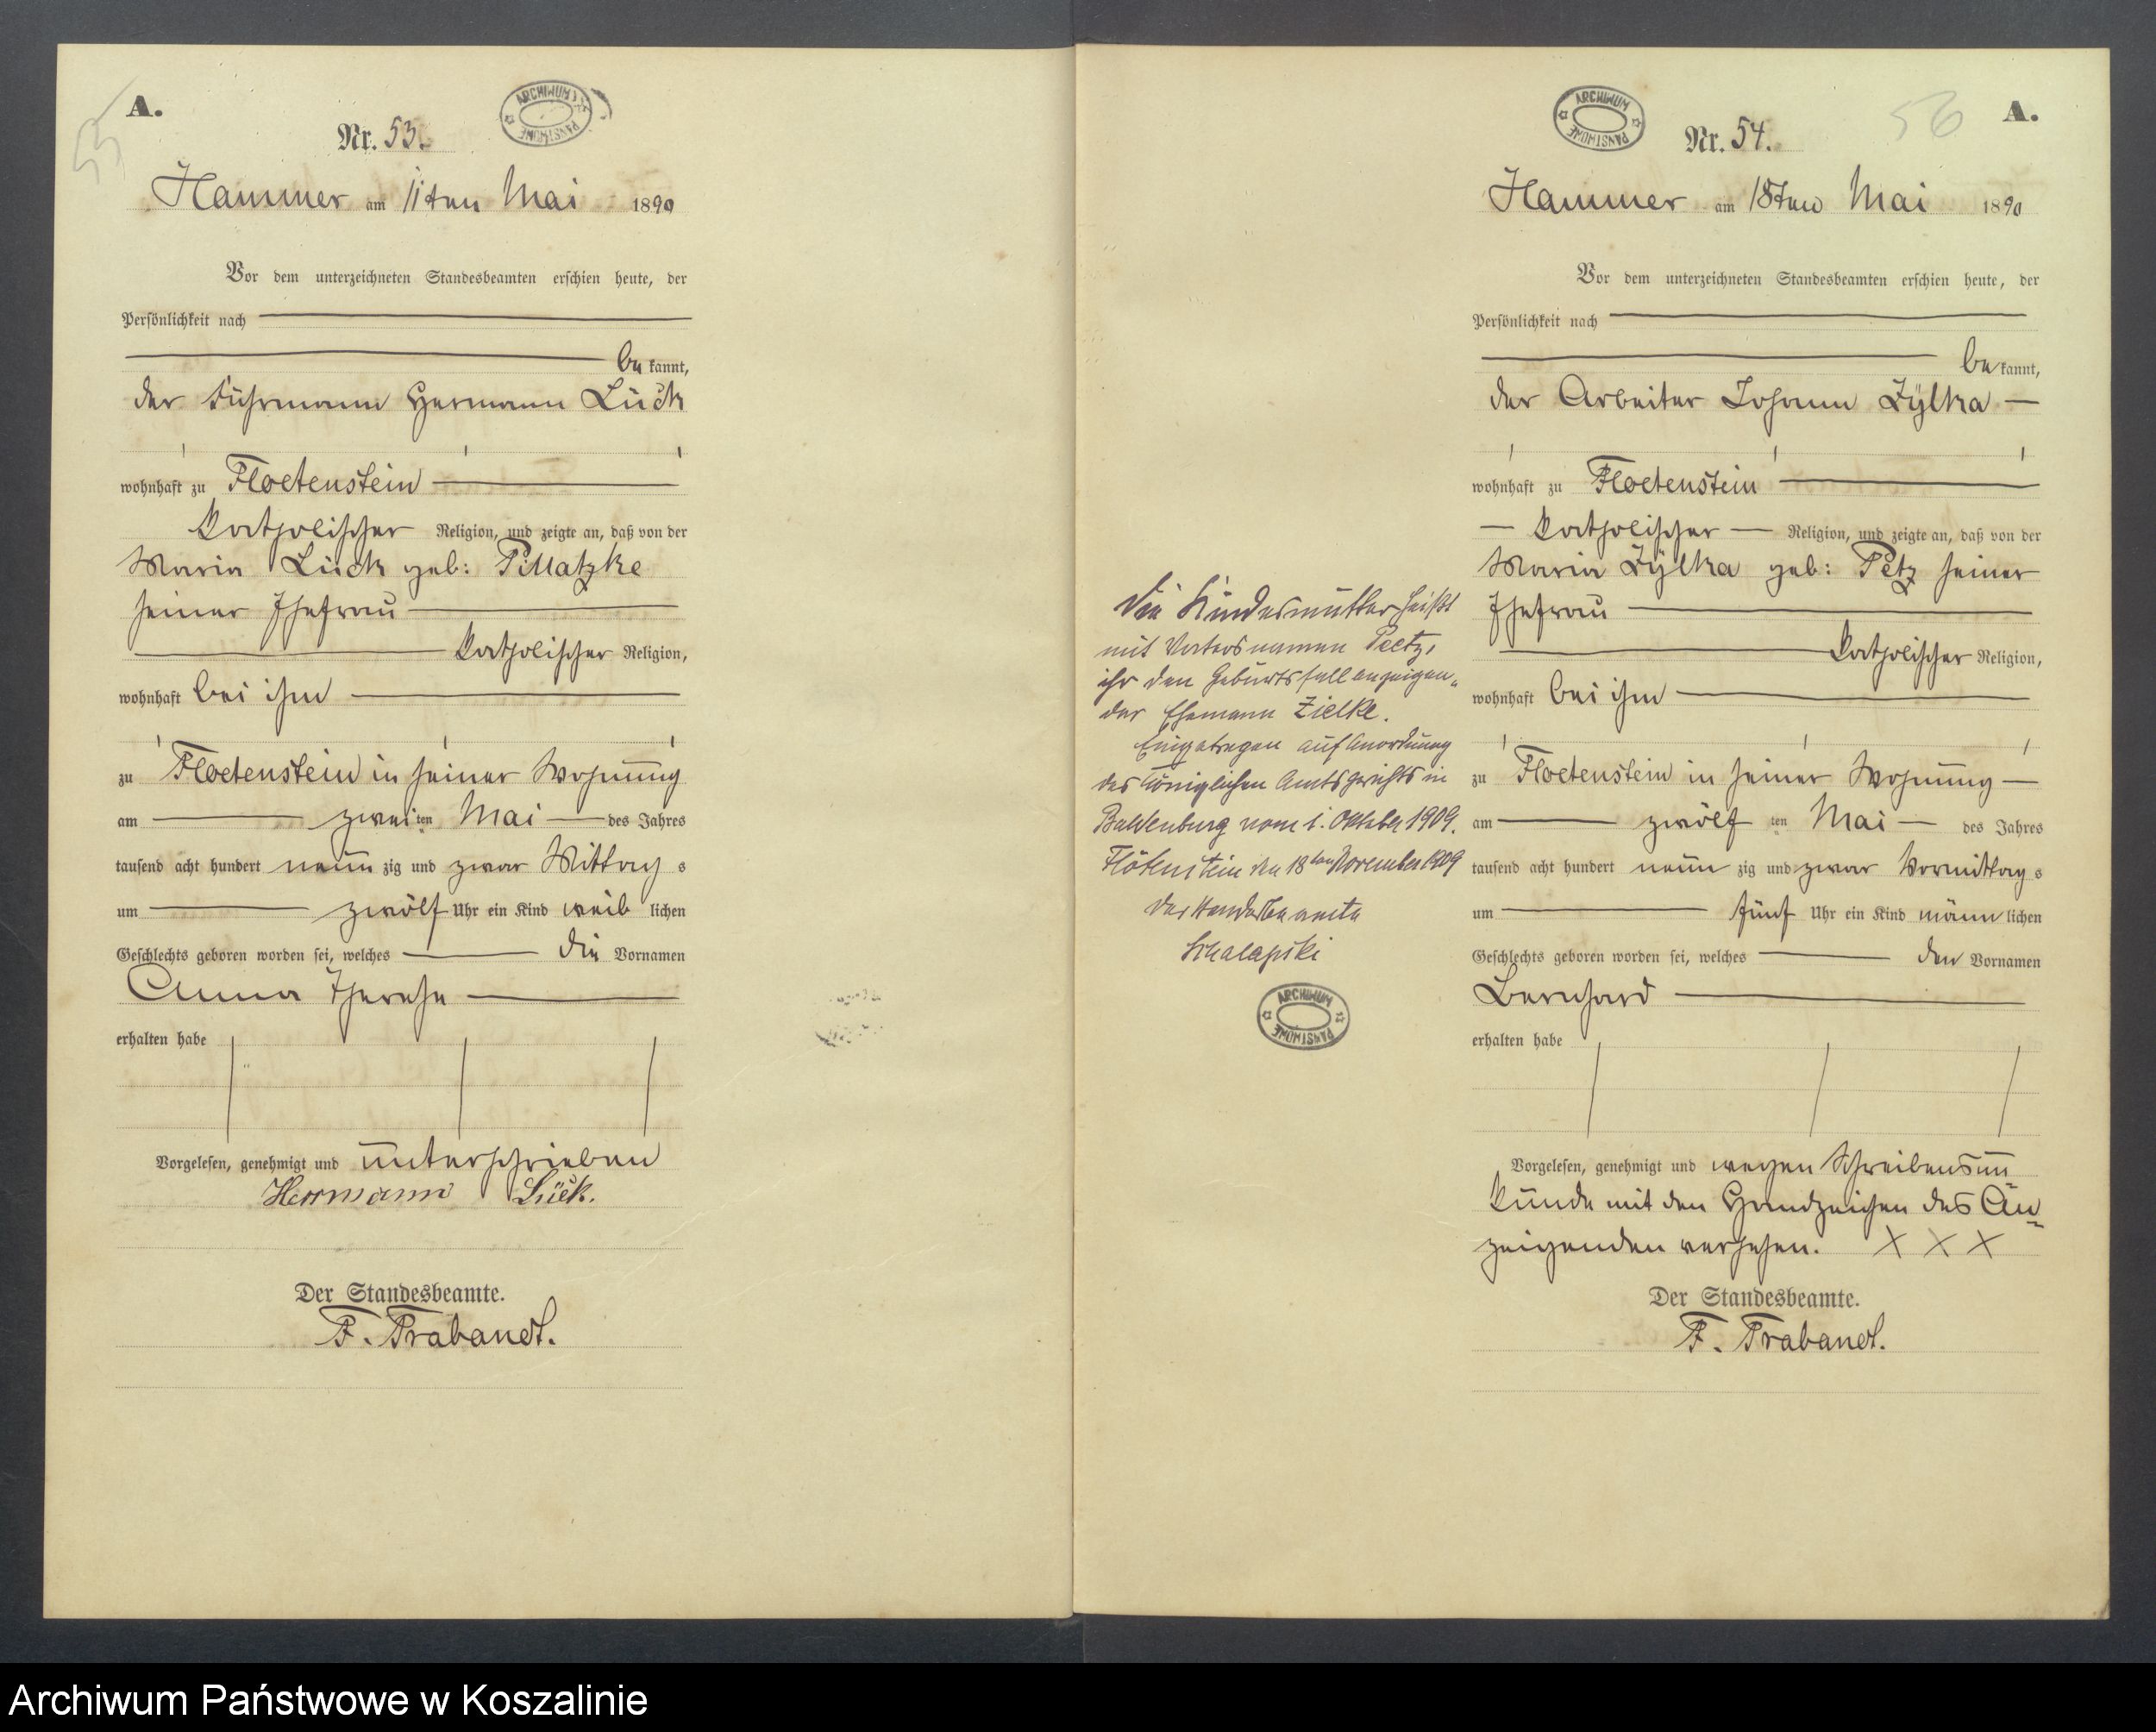 55
A.
ARCHIWUM PAŃSTWOWE
Nr. 53.
Hammer am 11ten Mai 1890
Vor dem unterzeichneten Standesbeamten erschien heute, der
Persönlichkeit nach
be kannt,
der Fuhrmann Hermann Lück
wohnhaft zu Floetenstein
katholischer Religion, und zeigte an, daß von der
Maria Lück geb: Pillatzke
seiner Ehefrau
katholischer Religion,
wohnhaft bei ihm
zu Floetenstein in seiner Wohnung
am zwei ten Mai des Jahres
tausend acht hundert neun zig und zwar Mittag s
um zwölf Uhr ein Kind weib lichen
Geschlechts geboren worden sei, welches die Vornamen
Anna Therese
erhalten habe
Vorgelesen, genehmigt und unterschrieben
Herrmann Lück.
Der Standesbeamte.
F. Trabandt.
ARCHIWUM PAŃSTWOWE
56
A.
Nr. 54.
Hammer am 18ten Mai 1890
Vor dem unterzeichneten Standesbeamten erschien heute, der
Persönlichkeit nach
be kannt,
der Arbeiter Johann Zÿlka
wohnhaft zu Floetenstein
katholischer Religion, und zeigte an, daß von der
Maria Zÿlka geb: Petz seiner
Ehefrau
katholischer Religion,
wohnhaft bei ihm
zu Floetenstein in seiner Wohnung
am zwölf ten Mai des Jahres
tausend acht hundert neun zig und zwar Vormittag s
um fünf Uhr ein Kind männ lichen
Geschlechts geboren worden sei, welches den Vornamen
Bernhard
erhalten habe
Vorgelesen, genehmigt und wegen Schreibensun
kunde mit den Handzeichen des An=
zeigenden versehen. X X X
Der Standesbeamte.
F. Trabandt.
Die Kindesmutter heißt
mit Vatersnamen Peetz,
ihr den Geburtsfall anzeigen-
der Ehemann Zielke.
Eingetragen auf Anordnung
des Königlichen Amtsgerichts in
Baldenburg vom 1. Oktober 1909.
Flötenstein den 18ten November 1909
Der Standesbeamte
ARCHIWUM PAŃSTWOWE
Archiwum Państwowe w Koszalinie